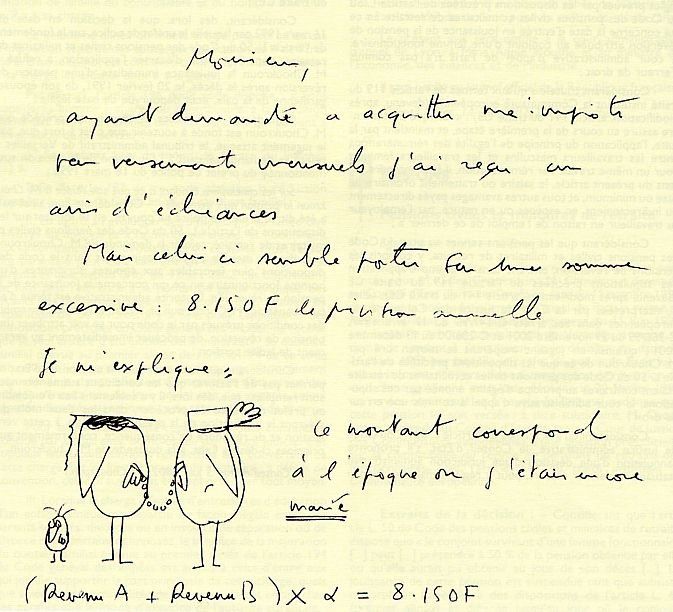 Monsieur,
ayant demandé a acquitter mes impots
par versements mensuels j'ai reçu un
avis d'échéances
Mais celui ci semble porter sur une somme
excessive : 8.150F de pension annuelle
Je m'explique :
ce montant correspond
à l'époque ou j'étais encore
marié
(Revenu A + Revenu B) X α = 8.150F